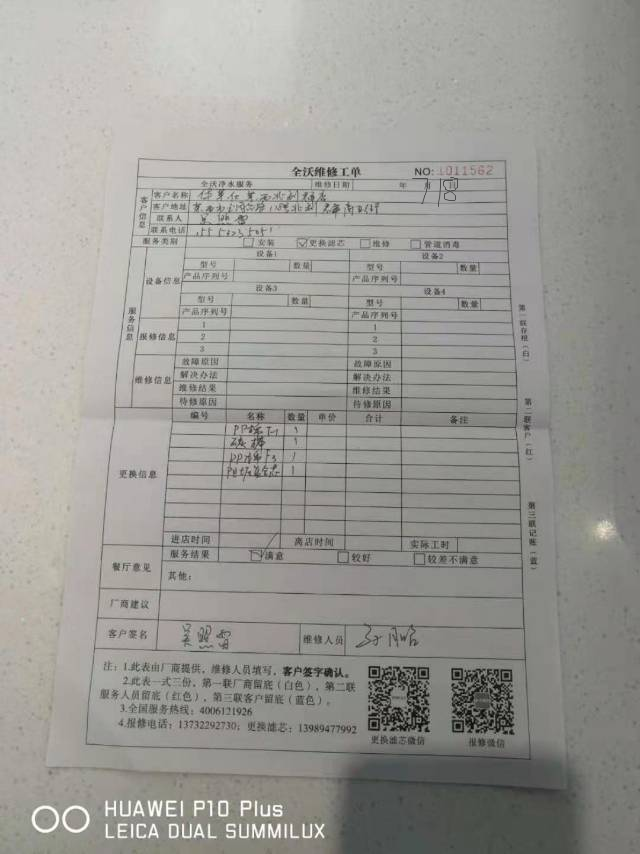 全沃维修工单
NO:1011562
全沃净水服务 维修日期 年 月 日
客户信息
客户名称
客户地址
联系人 吴照雷
联系电话
服务类别 安装 更换滤芯 维修 管道消毒
服务信息
设备信息
设备1 设备2
型号 数量 型号 数量
产品序列号 产品序列号
设备3 设备4
型号 数量 型号 数量
产品序列号 产品序列号
报修信息
1 1
2 2
3 3
维修信息
故障原因 故障原因
解决办法 解决办法
维修结果 维修结果
待修原因 待修原因
更换信息
编号 名称 数量 单价 合计 备注
1
碳棒 1
1
1
进店时间 离店时间 实际工时
餐厅意见
服务结果 满意 较好 较差不满意
其他：
厂商建议
客户签名 吴照雷 维修人员
注：1.此表由厂商提供，维修人员填写，客户签字确认。
2.此表一式三份，第一联厂商留底（白色），第二联
服务人员留底（红色），第三联客户留底（蓝色）。
3.全国服务热线：4006121926
4.报修电话：13732292730；更换滤芯：13989477992
更换滤芯微信 报修微信
第一联存根（白）
第二联客户（红）
第三联记账（蓝）
HUAWEI P10 Plus
LEICA DUAL SUMMILUX